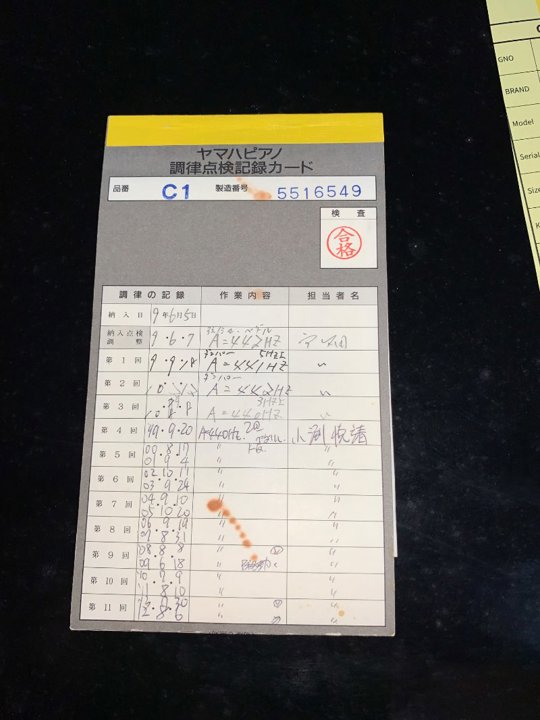 ヤマハピアノ
調律点検記録カード
品番 C1 製造番号 5516549
検査
合格
調律の記録 作業内容 担当者名
納入日 9年6月5日
納入点検調整 9・6・7 A=442HZ
第1回 9・9・18 A=441HZ 〃
第2回 A=442HZ 〃
第3回 A=440HZ 〃
第4回 99・9・20 A=440Hz.
第5回 00・8・17 〃 〃
01・9・4
第6回 02・10・11 〃 〃
03・9・24 〃 〃
第7回 04・9・10 〃 〃
05・10・20 〃 〃
第8回 06・9・19 〃 〃
07・8・31 〃 〃
第9回 08・8・8 〃 〃
09・6・18 〃 〃
第10回 10・9・9 〃 〃
11・8・10 〃 〃
第11回 12・8・30 〃 〃
〃
GNO
BRAND
Model
Serial